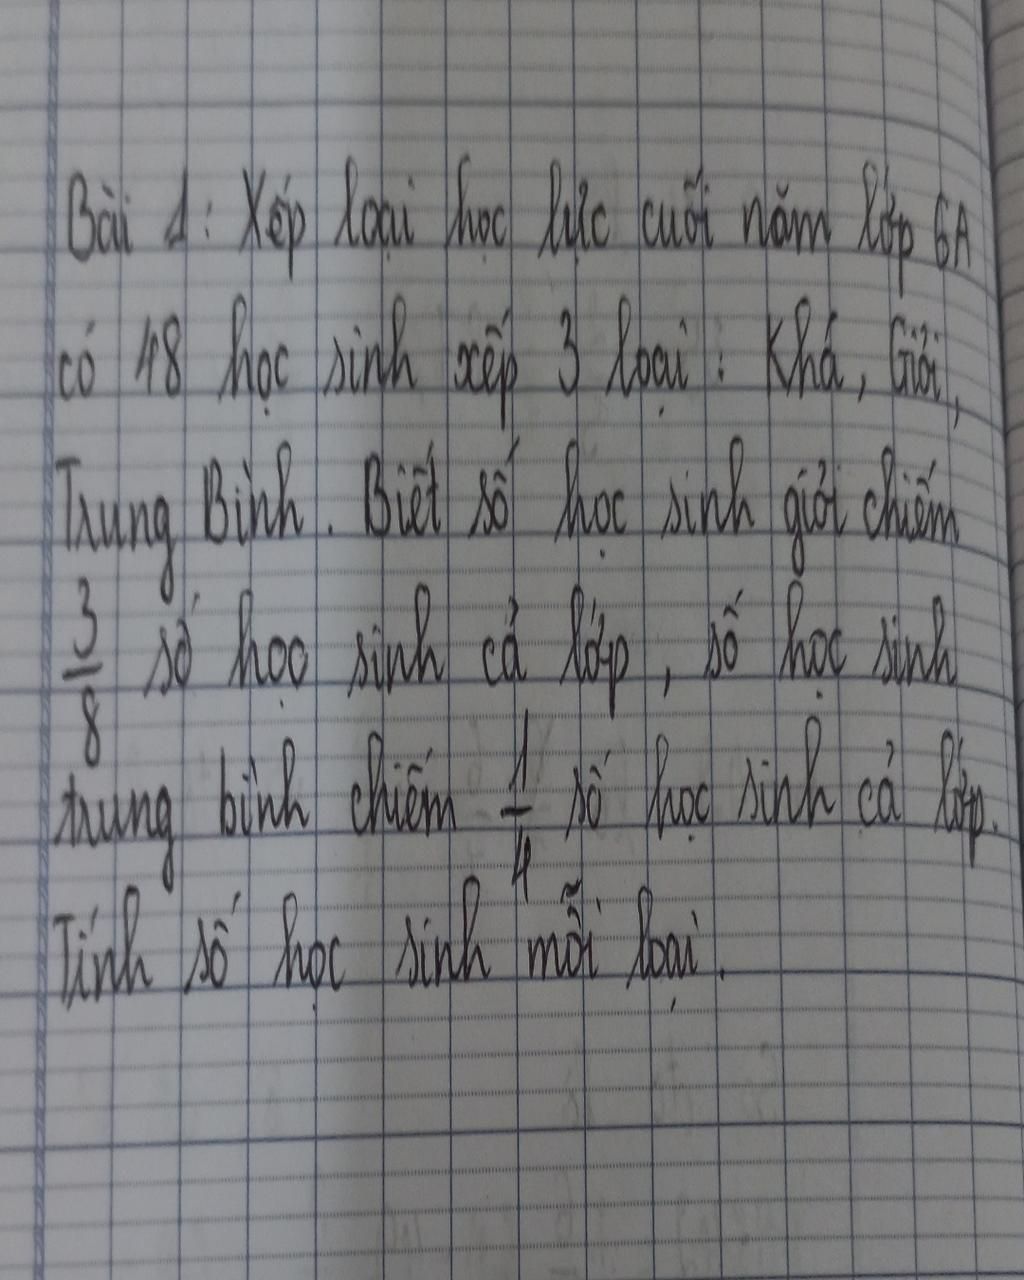 Bài 1: Xếp loại học lực cuối năm lớp 6A
có 48 học sinh xếp 3 loại: Khá, Giỏi,
Trung Bình. Biết số học sinh giỏi chiếm
3/8 số học sinh cả lớp, số học sinh
trung bình chiếm 1/4 số học sinh cả lớp.
Tính số học sinh mỗi loại.